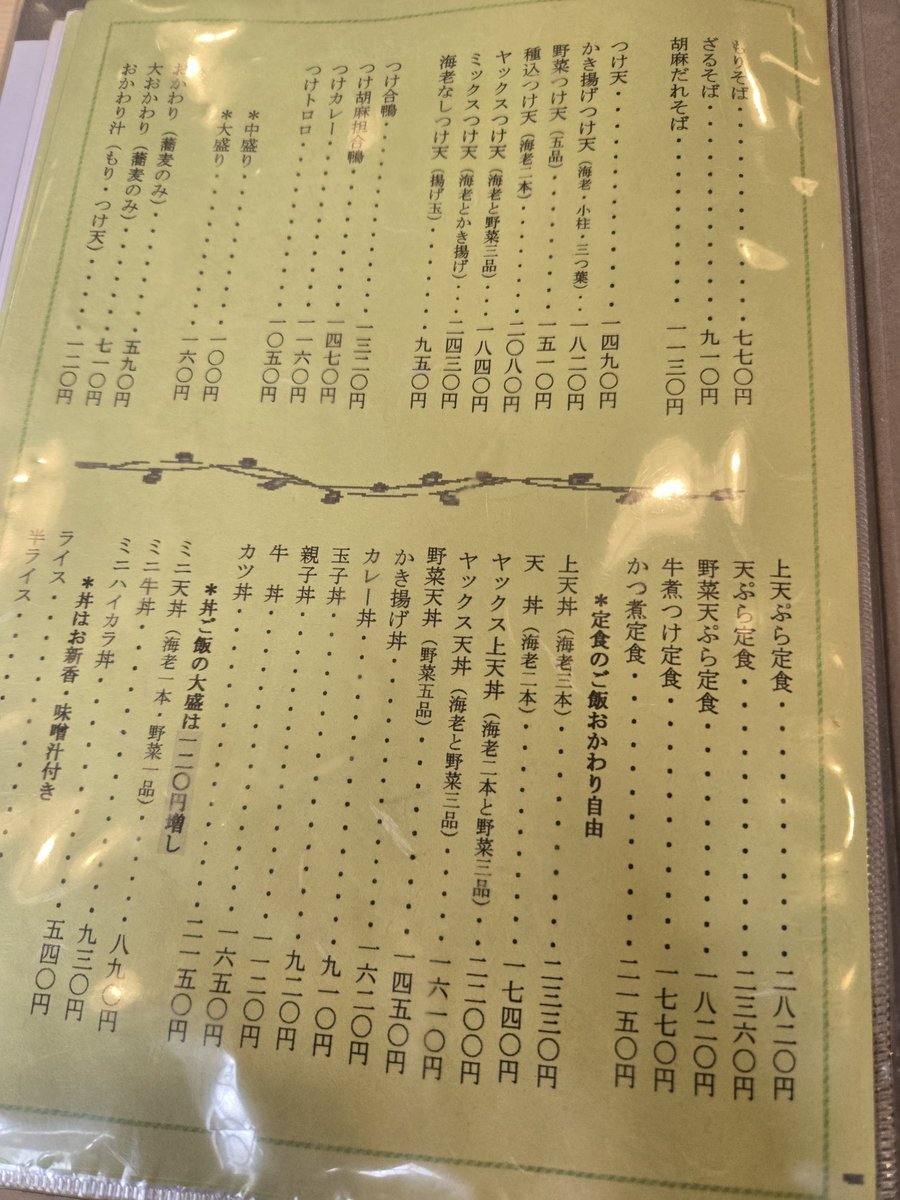 もりそば・・・・・・・・・七七〇円
ざるそば・・・・・・・・・九一〇円
胡麻だれそば・・・・・・・・・一一三〇円
つけ天・・・・・・・・・一四九〇円
かき揚げつけ天(海老・小柱・三つ葉)・・一八二〇円
野菜つけ天(五品)・・・・・・・一五一〇円
種込つけ天(海老二本)・・・・・・二〇八〇円
ヤックスつけ天(海老と野菜三品)・・・一八四〇円
ミックスつけ天(海老とかき揚げ)・・・二四三〇円
海老なしつけ天(揚げ玉)・・・・・九五〇円
つけ合鴨・・・・・・・・・一三二〇円
つけ胡麻担合鴨・・・・・・・一四七〇円
つけカレー・・・・・・・・・一一六〇円
つけトロロ・・・・・・・・・一〇五〇円
*中盛り・・・・・・・一〇〇円
*大盛り・・・・・・・一六〇円
おかわり(蕎麦のみ)・・・・・・五九〇円
大おかわり(蕎麦のみ)・・・・・七一〇円
おかわり汁(もり・つけ天)・・・・一二〇円
上天ぷら定食・・・・・・・・・二八二〇円
天ぷら定食・・・・・・・・・二三六〇円
野菜天ぷら定食・・・・・・・・・一八二〇円
牛煮つけ定食・・・・・・・・・一七七〇円
かつ煮定食・・・・・・・・・二一五〇円
*定食のご飯おかわり自由
上天丼(海老三本)・・・・・・・・二三三〇円
天 丼(海老二本)・・・・・・・・一七四〇円
ヤックス上天丼(海老二本と野菜三品)・・二二〇〇円
ヤックス天丼(海老と野菜三品)・・・・一六一〇円
野菜天丼(野菜五品)・・・・・・・一四五〇円
かき揚げ丼・・・・・・・・・一六二〇円
カレー丼・・・・・・・・・九一〇円
玉子丼・・・・・・・・・九二〇円
親子丼・・・・・・・・・一一二〇円
牛 丼・・・・・・・・・一六五〇円
カツ丼・・・・・・・・・二一五〇円
*丼ご飯の大盛は一二〇円増し
ミニ天丼(海老一本・野菜一品)・・・・八九〇円
ミニ牛丼・・・・・・・・・九三〇円
ミニハイカラ丼・・・・・・・・・五四〇円
*丼はお新香・味噌汁付き
ライス・・・・・・・・・
半ライス・・・・・・・・・